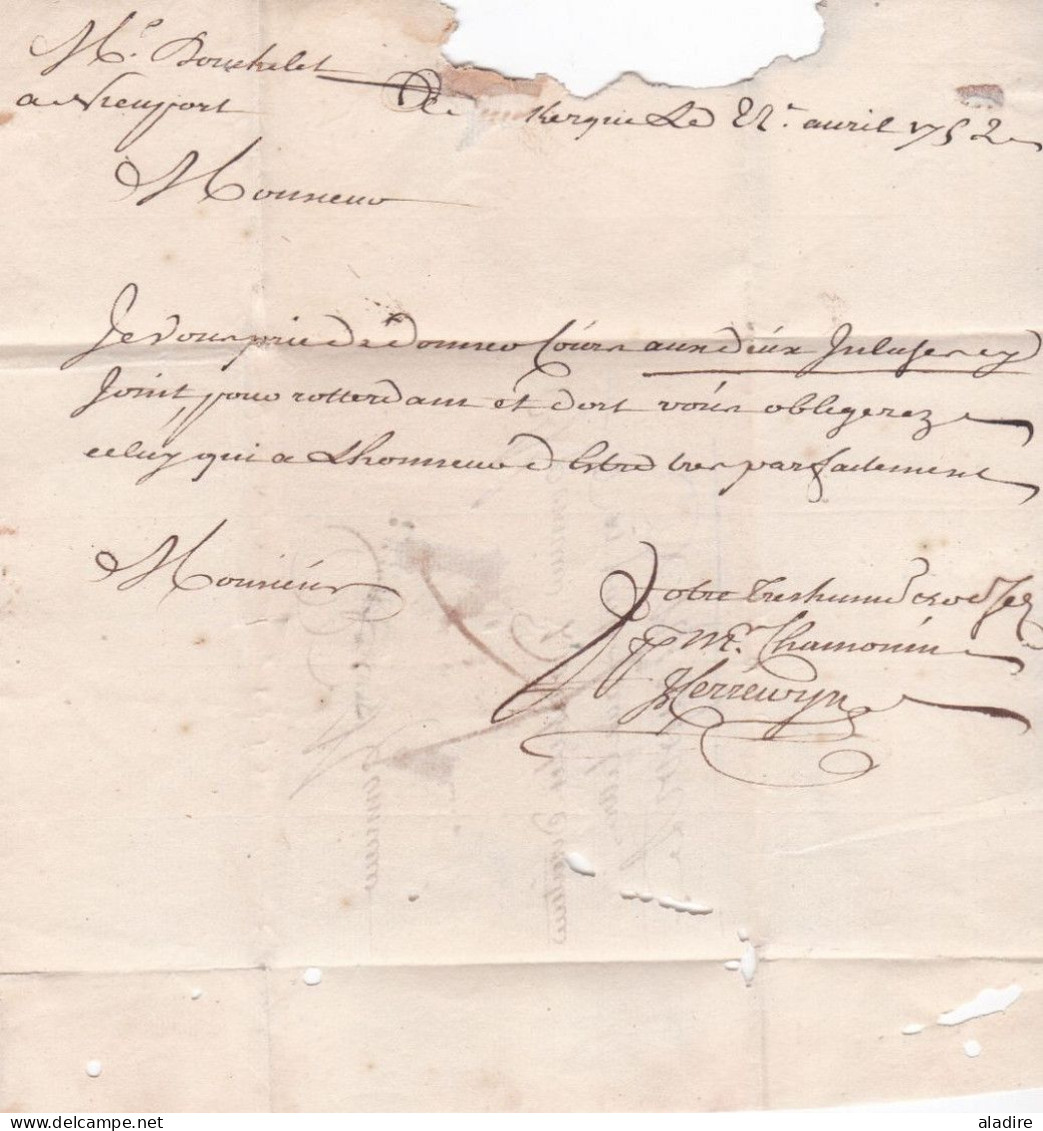 Mr. Bouchelet
a Nieuport
kerque Le 22e. auril 1752
Monsieur
Je vous prie de donner Cours aux deux Incluses cy
Joint pour rotterdam et dort vous obligerez
celuy qui a Lhonneur d'Estre tres parfaitement
Monsieur
Votre Tres humb
Mr. Chamonin
Herrewyn
aladire